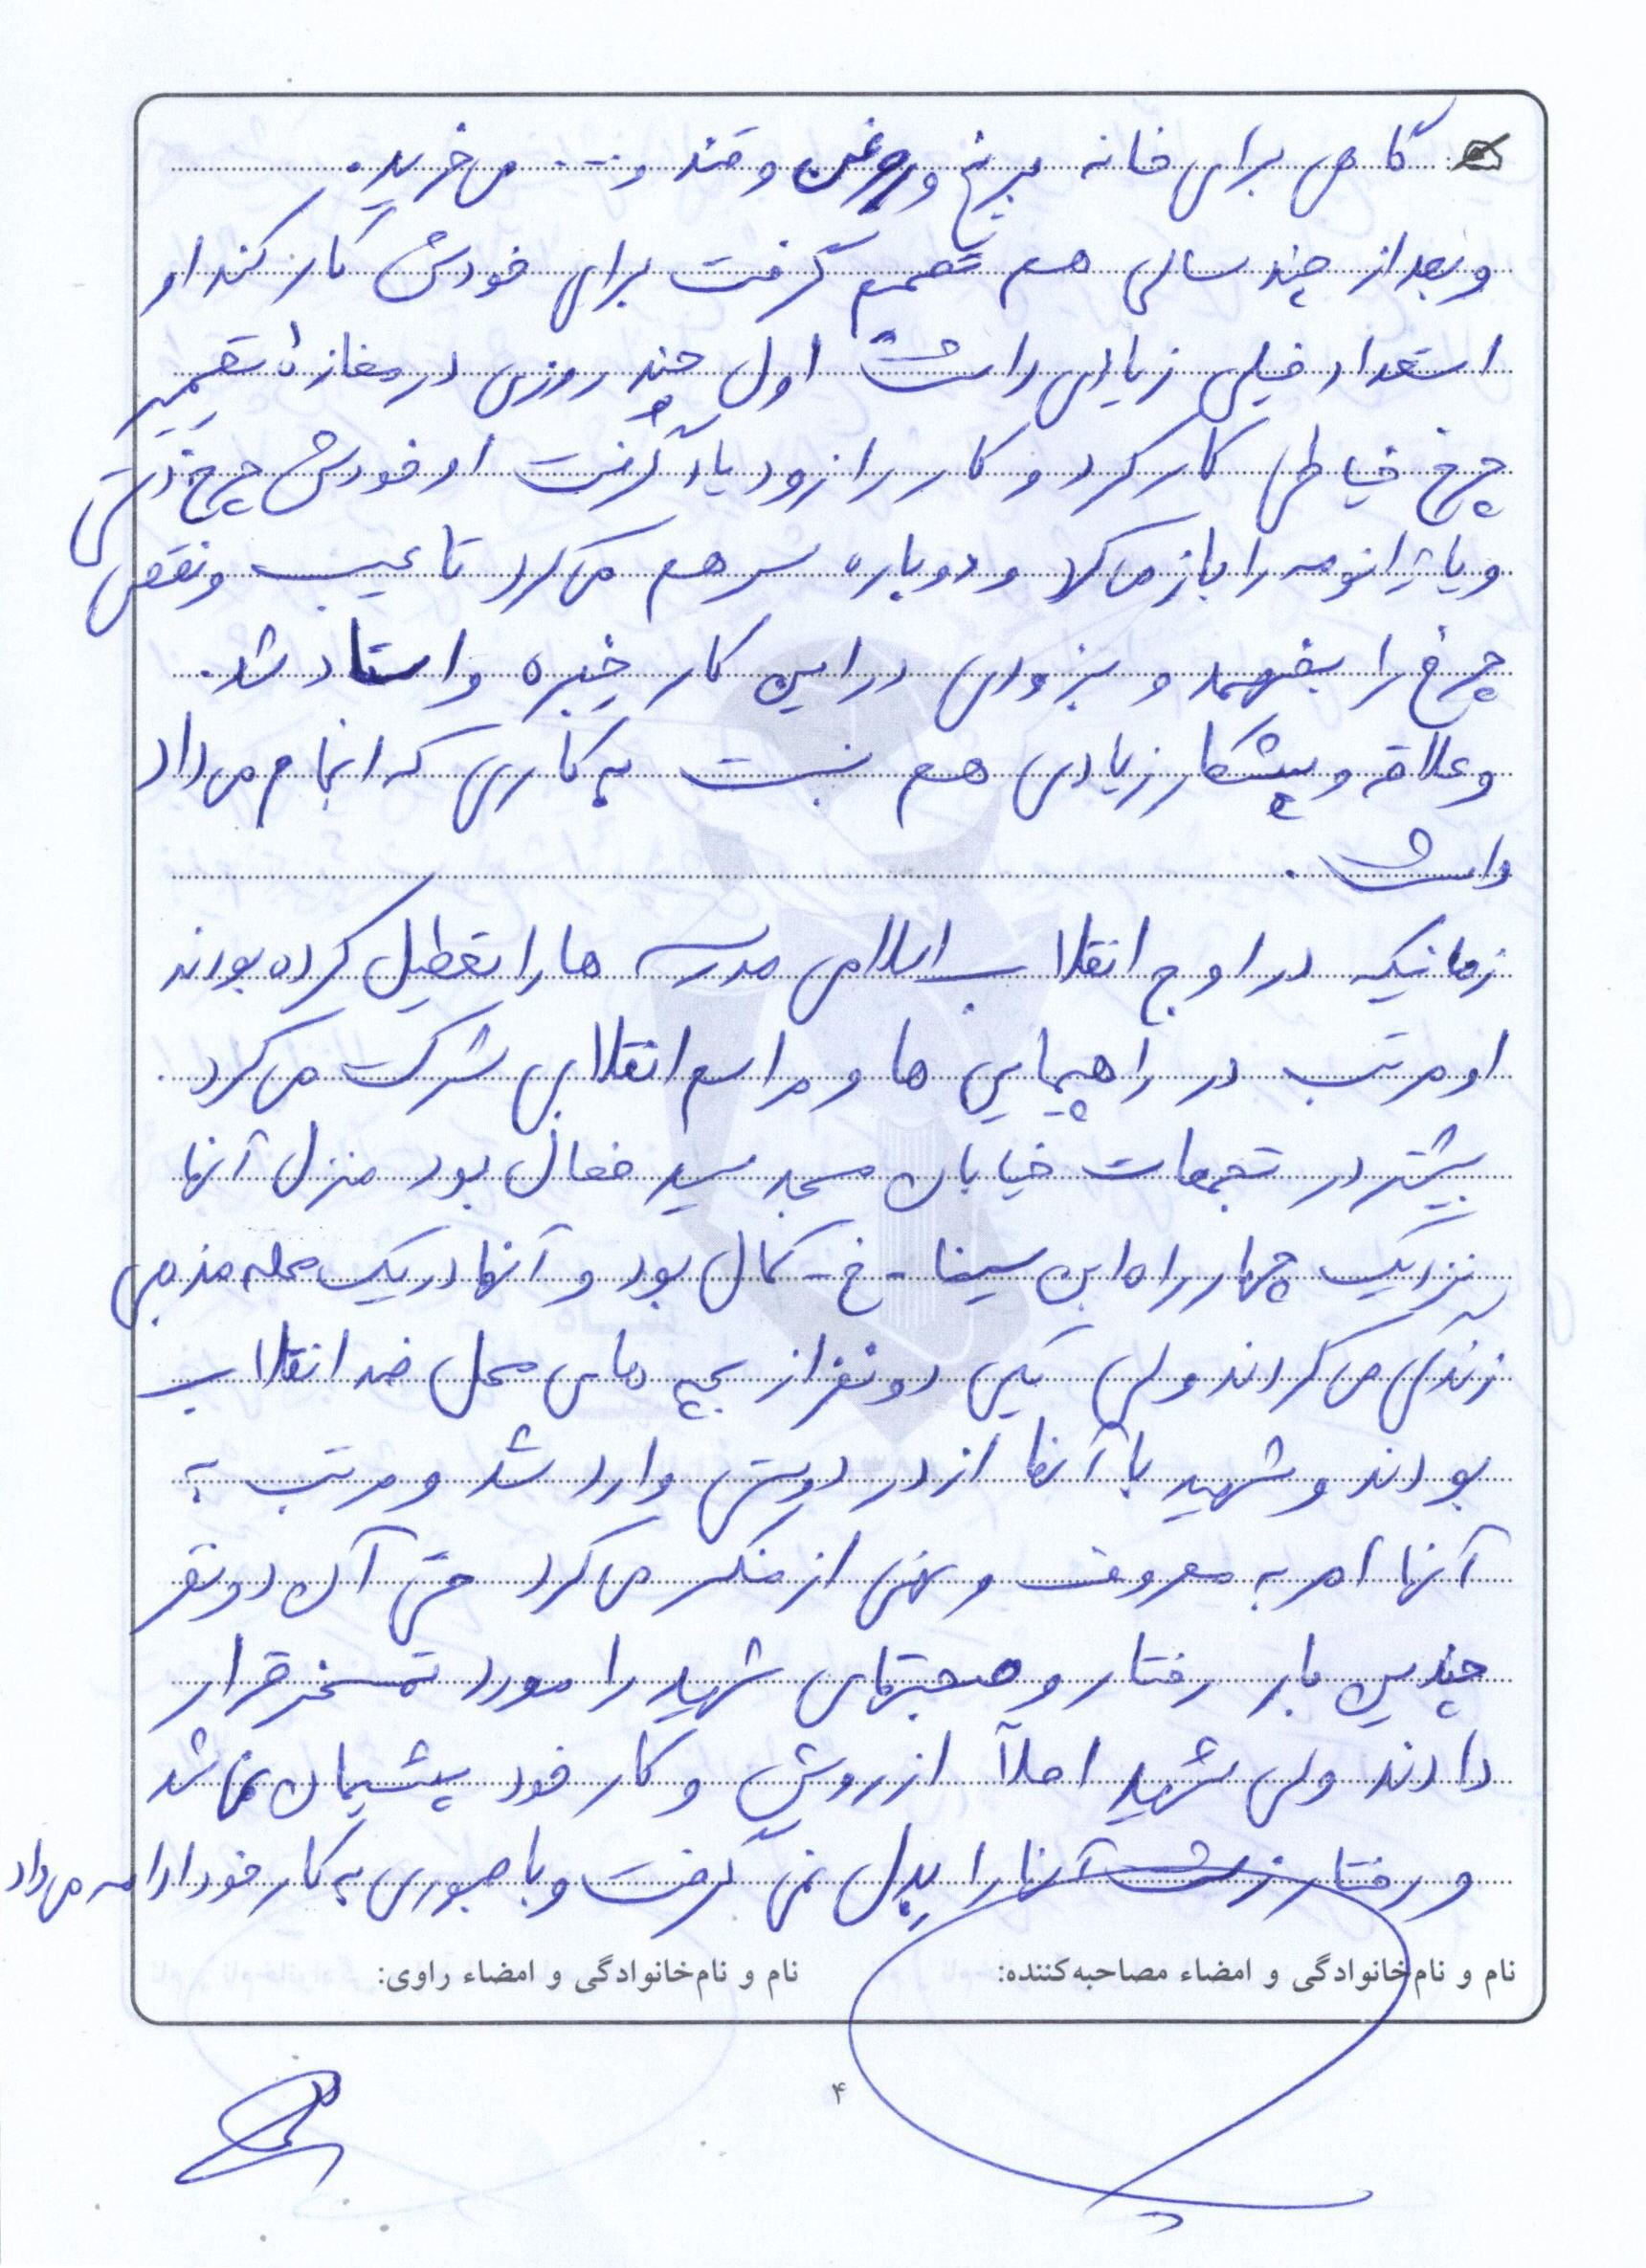 گاهی برای خانه برنج و روغن و قند و ... می خرید.
و بعد از چند سالی هم تصمیم گرفت برای خودش کار کند او
استعداد خیلی زیادی داشت اول چند روزی در مغازه تعمیر
چرخ خیاطی کار کرد و کار را زود یاد گرفت او خودش چرخ دستی
و یا ژانومه را باز می کرد و دوباره سر هم می کرد تا عیب و نقص
چرخ را بفهمد و بزودی در این کار خبره و استاد شد.
و علاقه و پشتکار زیادی هم نسبت به کاری که انجام می داد
داشت.
زمانیکه در اوج انقلاب اسلامی مدرسه ها را تعطیل کرده بودند
او مرتب در راهپیمایی ها و مراسم انقلابی شرکت می کرد.
بیشتر در تجمعات خیابان مسجد سید فعال بود منزل آنها
نزدیک چهارراه ابن سینا - خ - کمال بود و آنها در یک محله مذهبی
زندگی می کردند ولی یکی دو نفر از بچه های محل ضد انقلاب
بودند و شهید با آنها از در دوستی وارد شد و مرتب به
آنها امر به معروف و نهی از منکر می کرد حتی آن دو نفر
چندین بار رفتار و صحبتهای شهید را مورد تمسخر قرار
دادند ولی شهید اصلاً از روش و کار خود پشیمان نمی شد
و رفتار زشت آنها را بدل نمی گرفت و با صبوری به کار خود ادامه می داد
نام و نام‌خانوادگی و امضاء مصاحبه‌کننده: نام و نام‌خانوادگی و امضاء راوی:
۴